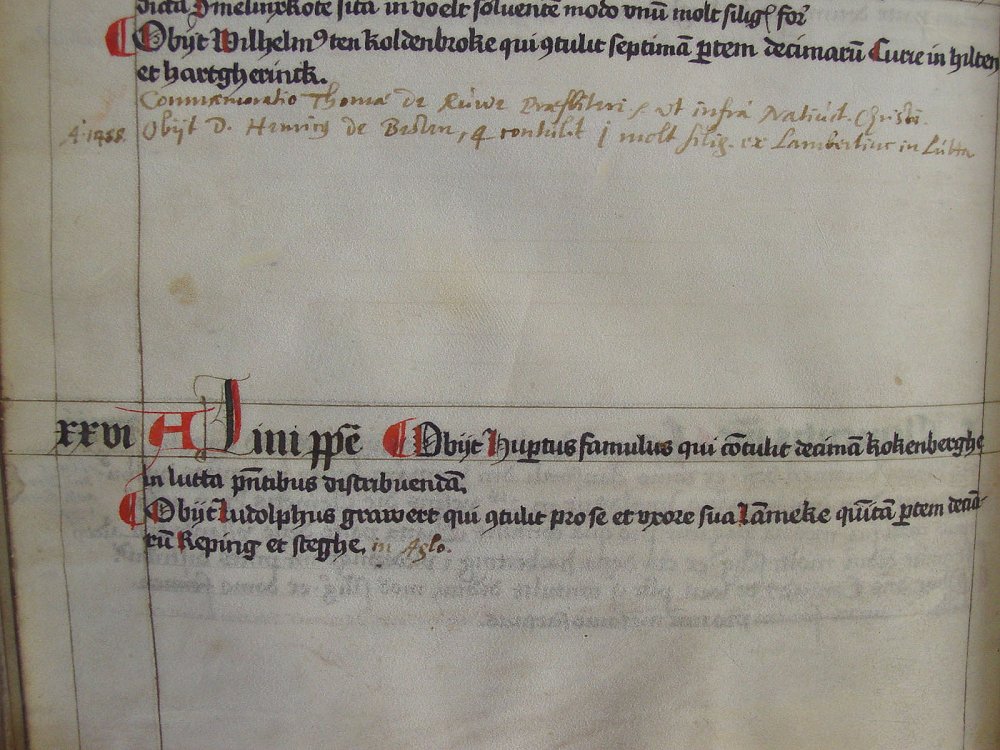 dicta Smelinxkote sita in voelt soluentē modo vnū molt silig for
Obijt Wilhelmꝰ ten koldenbroke qui ꝯtulit septimā ꝑtem decimarū Curie in hilten
et hartgherinck.
Commemoratio Thomæ de Rüwe Præsbiteri, ut infra Nativit. Christi.
Aº 1488. Obijt D. Henricꝰ de Beston, q contulit j molt silig. ex Lambertinc in Lutta
xxvi A Lini ppē Obijt Huꝑtus famulus qui cōtulit decimā kokenberghe
in lutta pñtibus distribuendā.
Obijt Ludolphus grawert qui ꝯtulit pro se et vxore sua Jāmeke quītā ꝑtem decia
rū Reping et steghe, in Aglo.